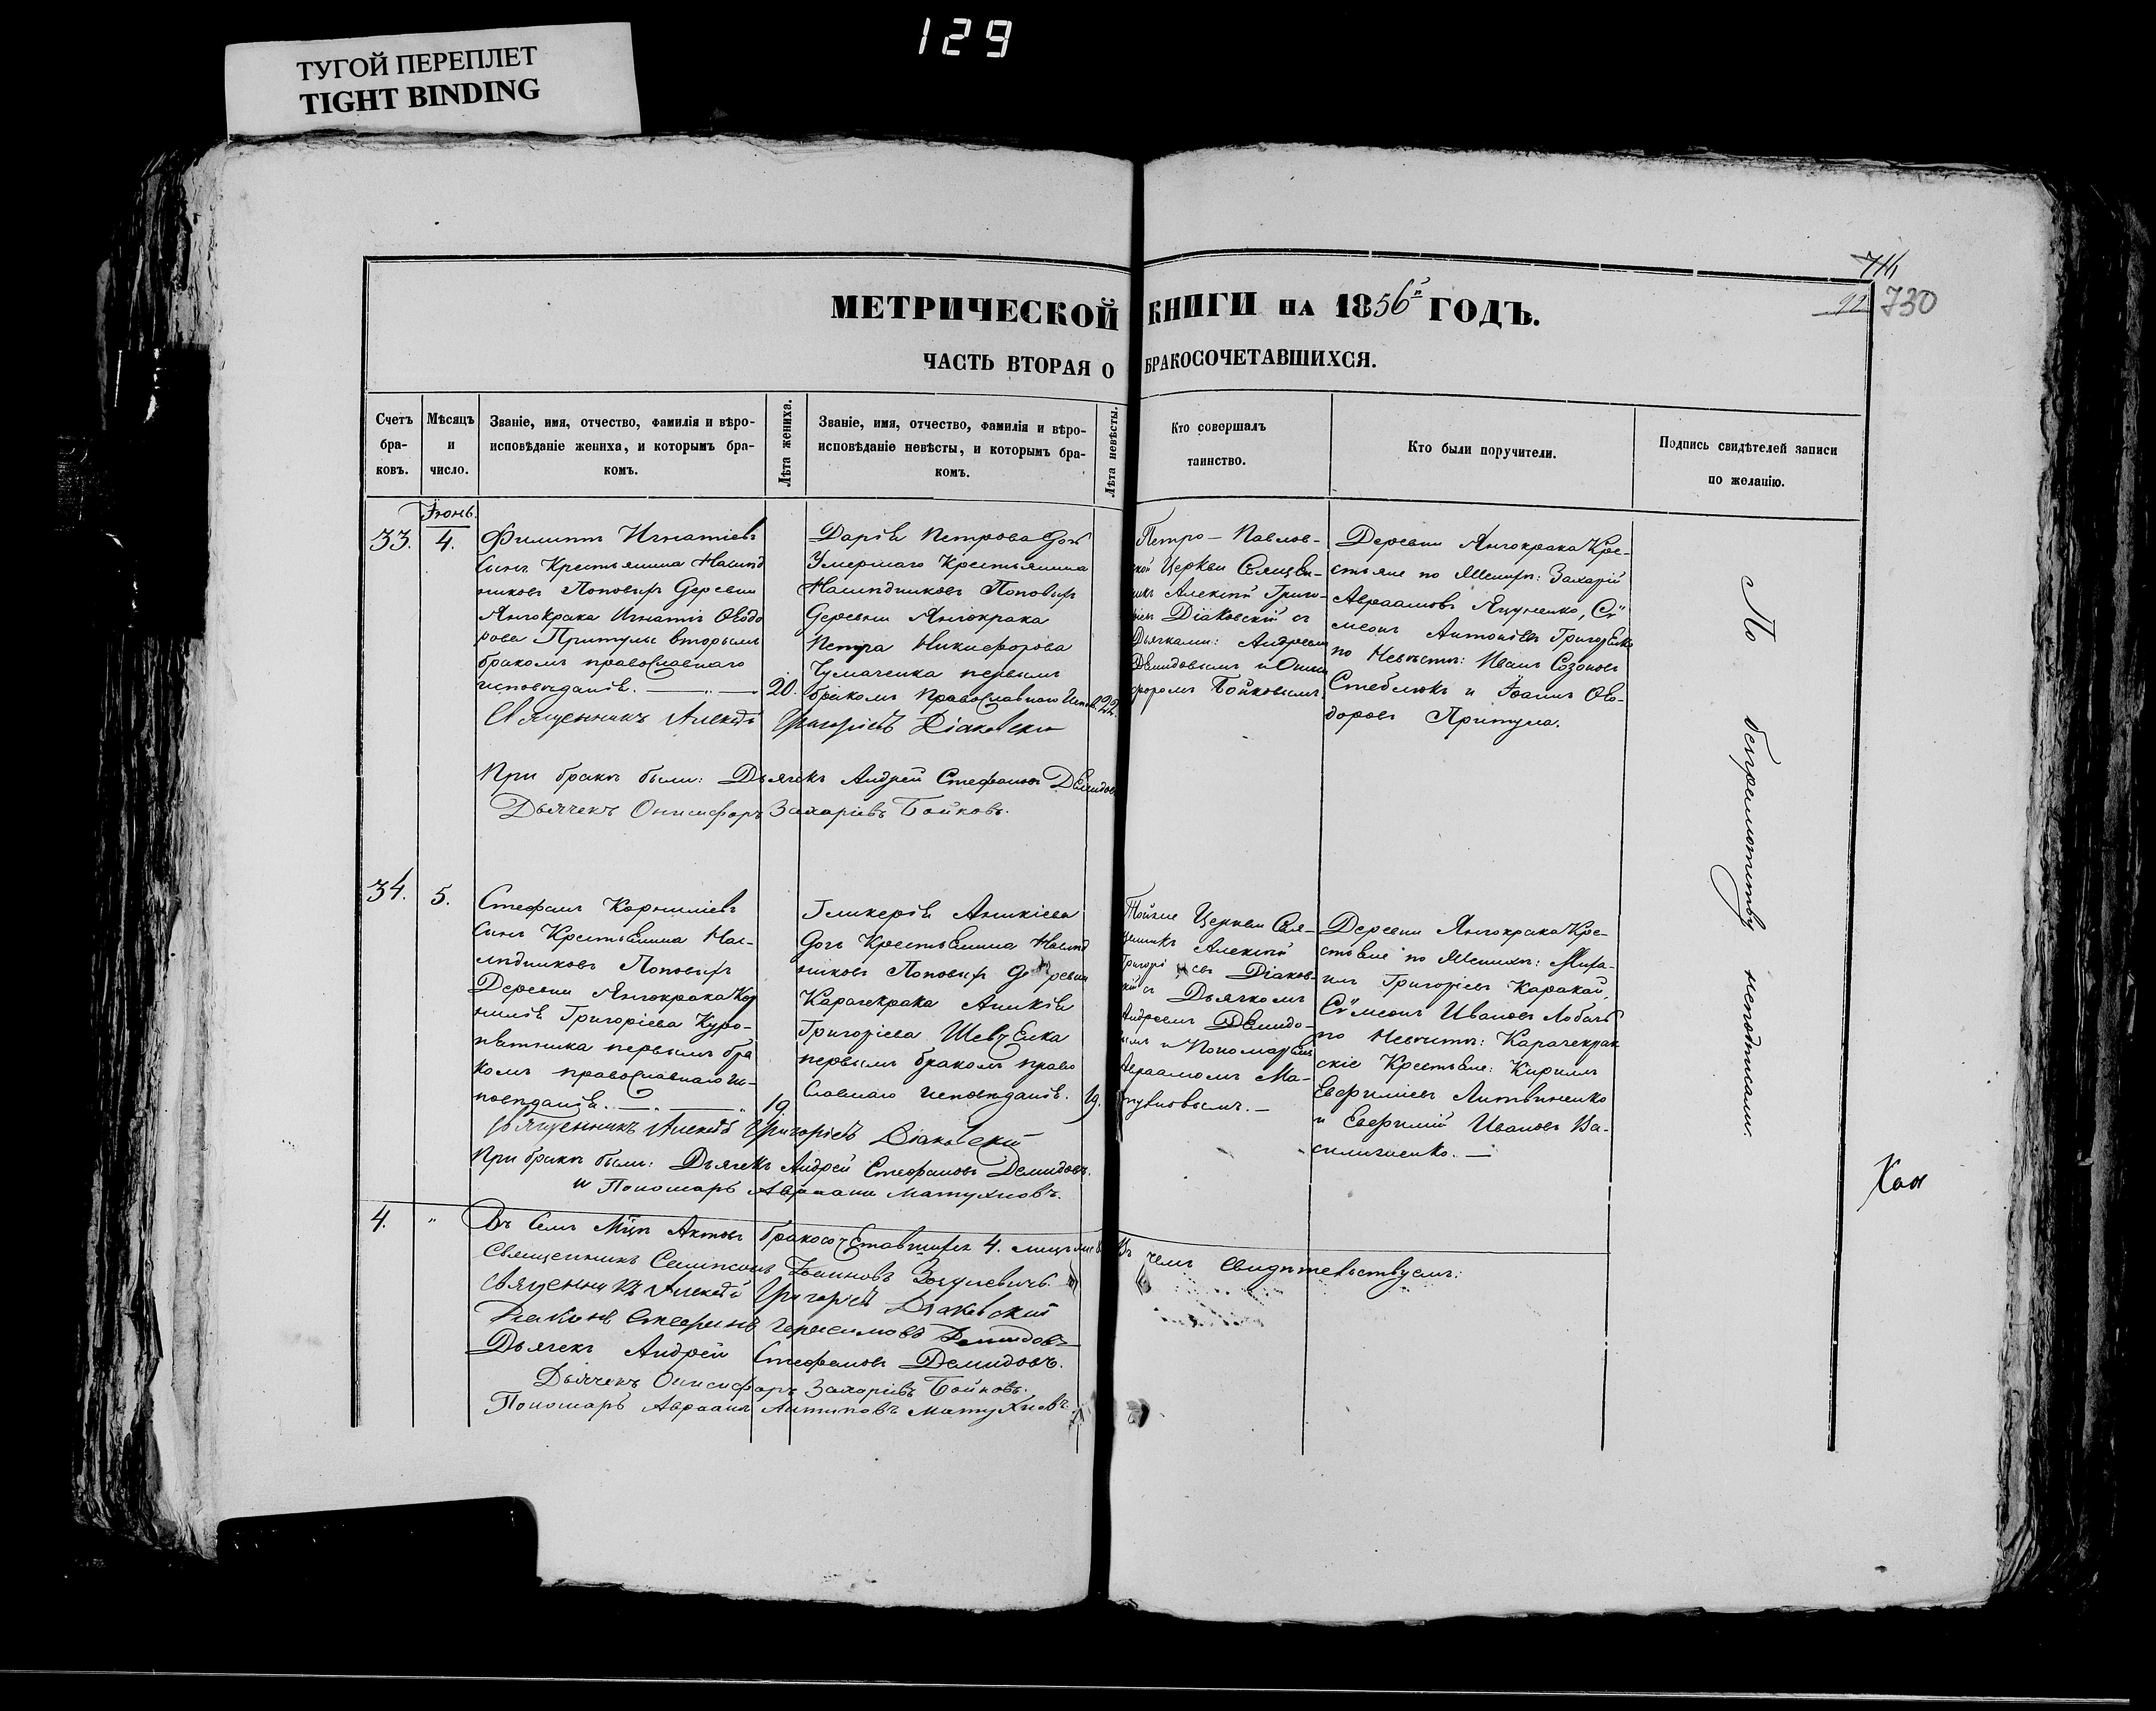 129
ТУГОЙ ПЕРЕПЛЕТ
TIGHT BINDING
92
730
МЕТРИЧЕСКОЙ КНИГИ НА 1856й ГОДЪ.
ЧАСТЬ ВТОРАЯ О БРАКОСОЧЕТАВШИХСЯ.
Счетъ
бра-
ковъ.
Мѣсяцъ
и
число.
Званіе, имя, отчество, фамилія и вѣро-
исповѣданіе жениха, и которымъ бра-
комъ.
Лѣта жениха.
Званіе, имя, отчество, фамилія и вѣро-
исповѣданіе невѣсты, и которымъ бра-
комъ.
Лѣта невѣсты.
Кто совершалъ
таинство.
Кто были поручители.
Подпись свидѣтелей записи
по желанію.
33.
Іюнь
4.
Филиппъ Игнатіевъ
Сынъ Крестьянина Наслѣд
никовъ Поповыхъ деревни
Янчокрака Игнатія Ѳеодо
рова Притулы вторымъ
бракомъ православнаго
исповѣданія.
20.
Дарія Петрова дочь
Умершаго Крестьянина
Наслѣдниковъ Поповыхъ
деревни Янчокрака
Петра Никифорова
Чумаченка первымъ
бракомъ православнаго Испов.
22.
Петро-Павлов-
ской Церкви Священ-
никъ Алексій Григо-
ріевъ Діаковскій съ
Дьячками: Андреемъ
Демидовымъ и Ониси
форомъ Бойковымъ
Деревни Янчокрака Кре-
стьяне по Женихѣ: Захарій
Авраамовъ Яцуненко, Сѵ
меонъ Антоніевъ Григоренко
по Невѣстѣ: Иванъ Созоновъ
Стеблюкъ и Іоаннъ Ѳео-
доровъ Притула.
Священникъ Алексій Григоріевъ Діаковскій
При бракѣ были: Дьячекъ Андрей Стефановъ Демидовъ
Дьячекъ Онисифоръ Захаріевъ Бойковъ.
По безграмотству неподписали.
34.
5.
Стефанъ Корниліевъ
Сынъ Крестьянина Нас-
лѣдниковъ Поповыхъ
Деревни Янчокрака Кор
нилія Григоріева Куро-
пятника первымъ бра
комъ православнаго ис-
повѣданія.
19.
Гликерія Аникіева
дочь Крестьянина Наслѣд
никовъ Поповыхъ деревни
Карачекрака Аникія
Григоріева Шевченка
первымъ бракомъ право
славнаго исповѣданія.
19.
Тойже Церкви Свя-
щенникъ Алексій
Григоріевъ Діаковс
кій съ Дьячкомъ
Андреемъ Демидо-
вымъ и Пономаремъ
Авраамомъ Ма-
тухновымъ.
Деревни Янчокрака Кре-
стьяне по Женихѣ: Миха-
илъ Григоріевъ Каракай,
Сѵмеонъ Ивановъ Лобачъ
по Невѣстѣ: Карачекрак
скіе Крестьяне: Кириллъ
Евфиміевъ Литвиненко
и Евфимій Ивановъ Ва-
силишенко.
Священникъ Алексій Григоріевъ Діаковскій
При бракѣ были: Дьячекъ Андрей Стефановъ Демидовъ.
и Пономарь Авраамъ Матухновъ.
4.
Въ Семъ Мцѣ Актовъ бракосочетавшихъ 4.
въ чемъ свидѣтельствуемъ:
Священникъ Іоанновъ
Священникъ Алексій Григоріевъ Діаковскій
Діаконъ Стефанъ Герасимовъ Демидовъ
Дьячекъ Андрей Стефановъ Демидовъ.
Дьячекъ Онисифоръ Захаріевъ Бойковъ.
Пономарь Авраамъ Антиповъ Матухновъ